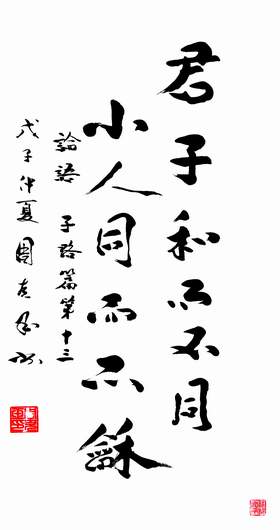 君子和而不同
小人同而不龢
論語 子路篇第十三
戊子仲夏